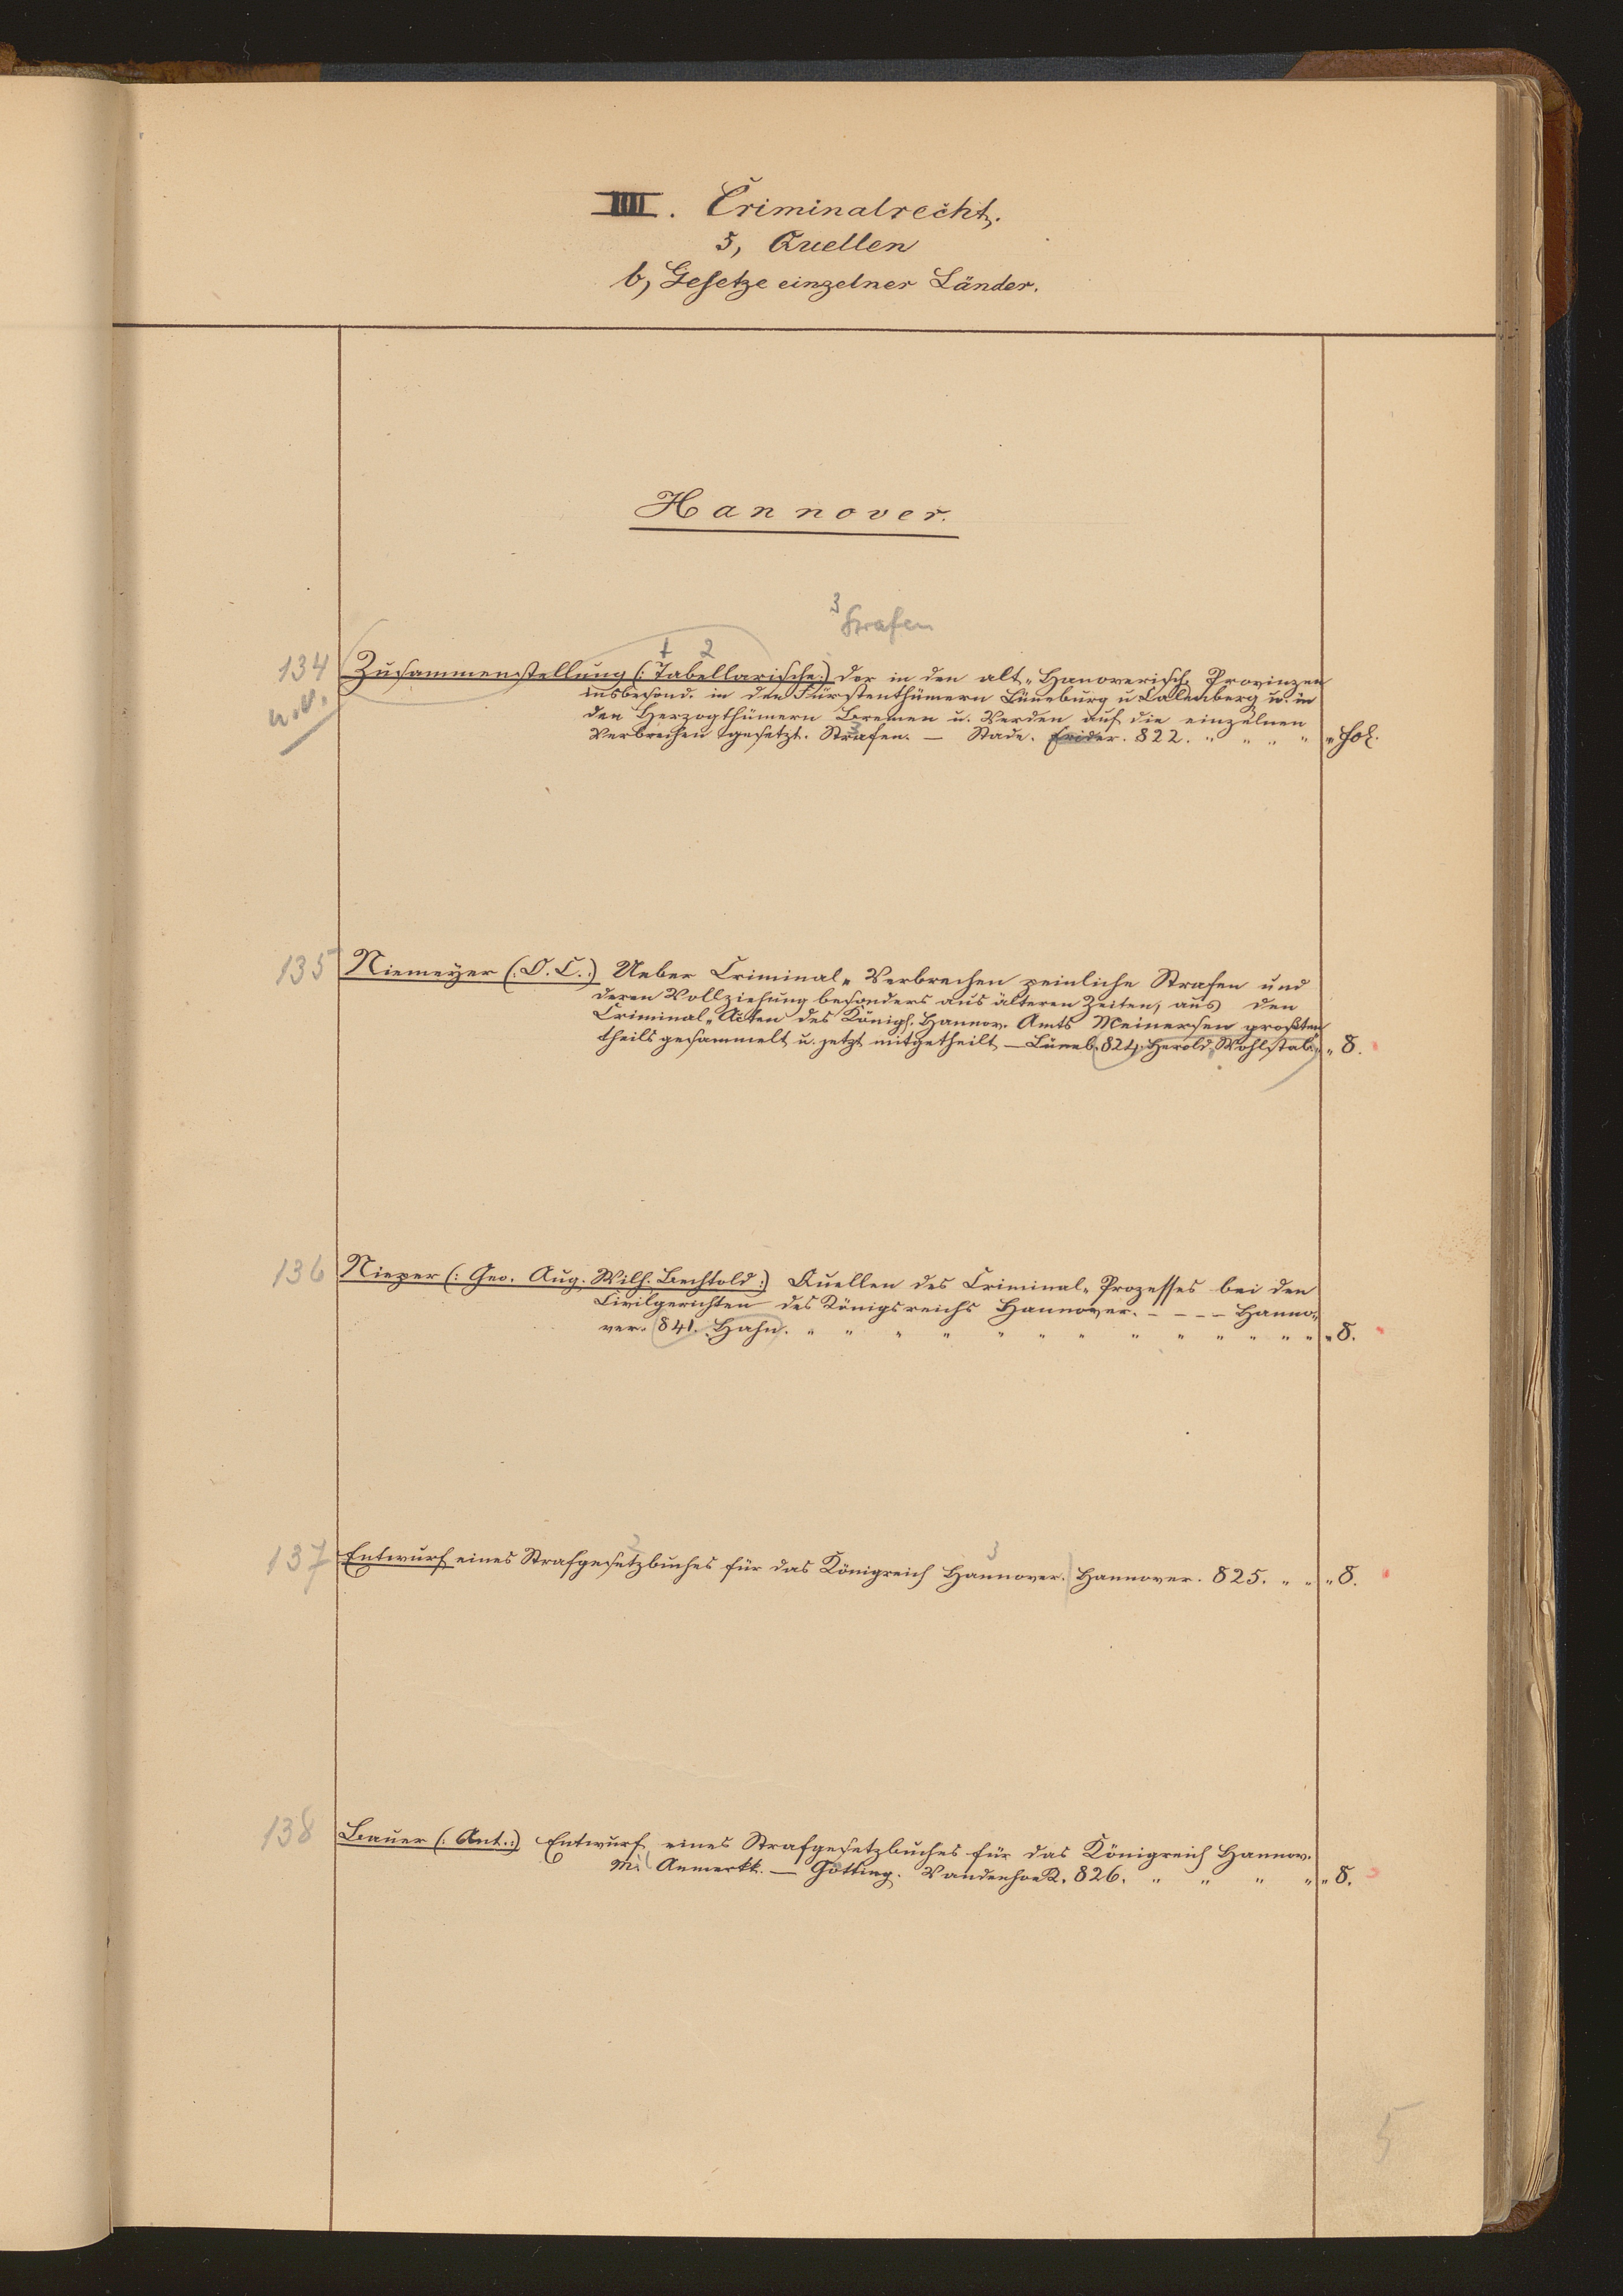 IIII. Criminalrecht.
5, Quellen
b, Gesetze einzelner Länder.
Hannover.
3
Strafen
1 2
134 Zusammenstellung (: Tabellarische:) der in den alt-Hanoverisch. Provinzen
n.v. insbesond. in den Fürstenthümern Lüneburg u Calenberg u. in
den Herzogthümern Bremen u. Verden auf die einzelnen
Verbrechen gesetzt. Strafen. — Stade. Frider. 822. " " " " " Fol.
135 Niemeyer (: O. C. :) Ueber Criminal-Verbrechen peinliche Strafen und
deren Vollziehung besonders aus älteren Zeiten, aus den
Criminal-Acten des Königl. Hannov. Amts Meinersen größten
theils gesammelt u. jetzt mitgetheilt — Lüneb. 824. Herold, Wohlstab. " 8.
136 Nieper (: Geo. Aug. Wilh. Bechtold :) Quellen des Criminal-Prozesses bei den
Civilgerichten des Königsreichs Hannover. - - - - Hanno-
ver. 841. Hahn. " " " " " " " " " " " " " " 8.
2 3
137 Entwurf eines Strafgesetzbuches für das Königreich Hannover. Hannover. 825. " " " 8.
138 Bauer (: Ant. :) Entwurf eines Strafgesetzbuches für das Königreich Hannov.
M. Anmerkk. — Götting. Vandenhoek. 826. " " " " " 8.
5